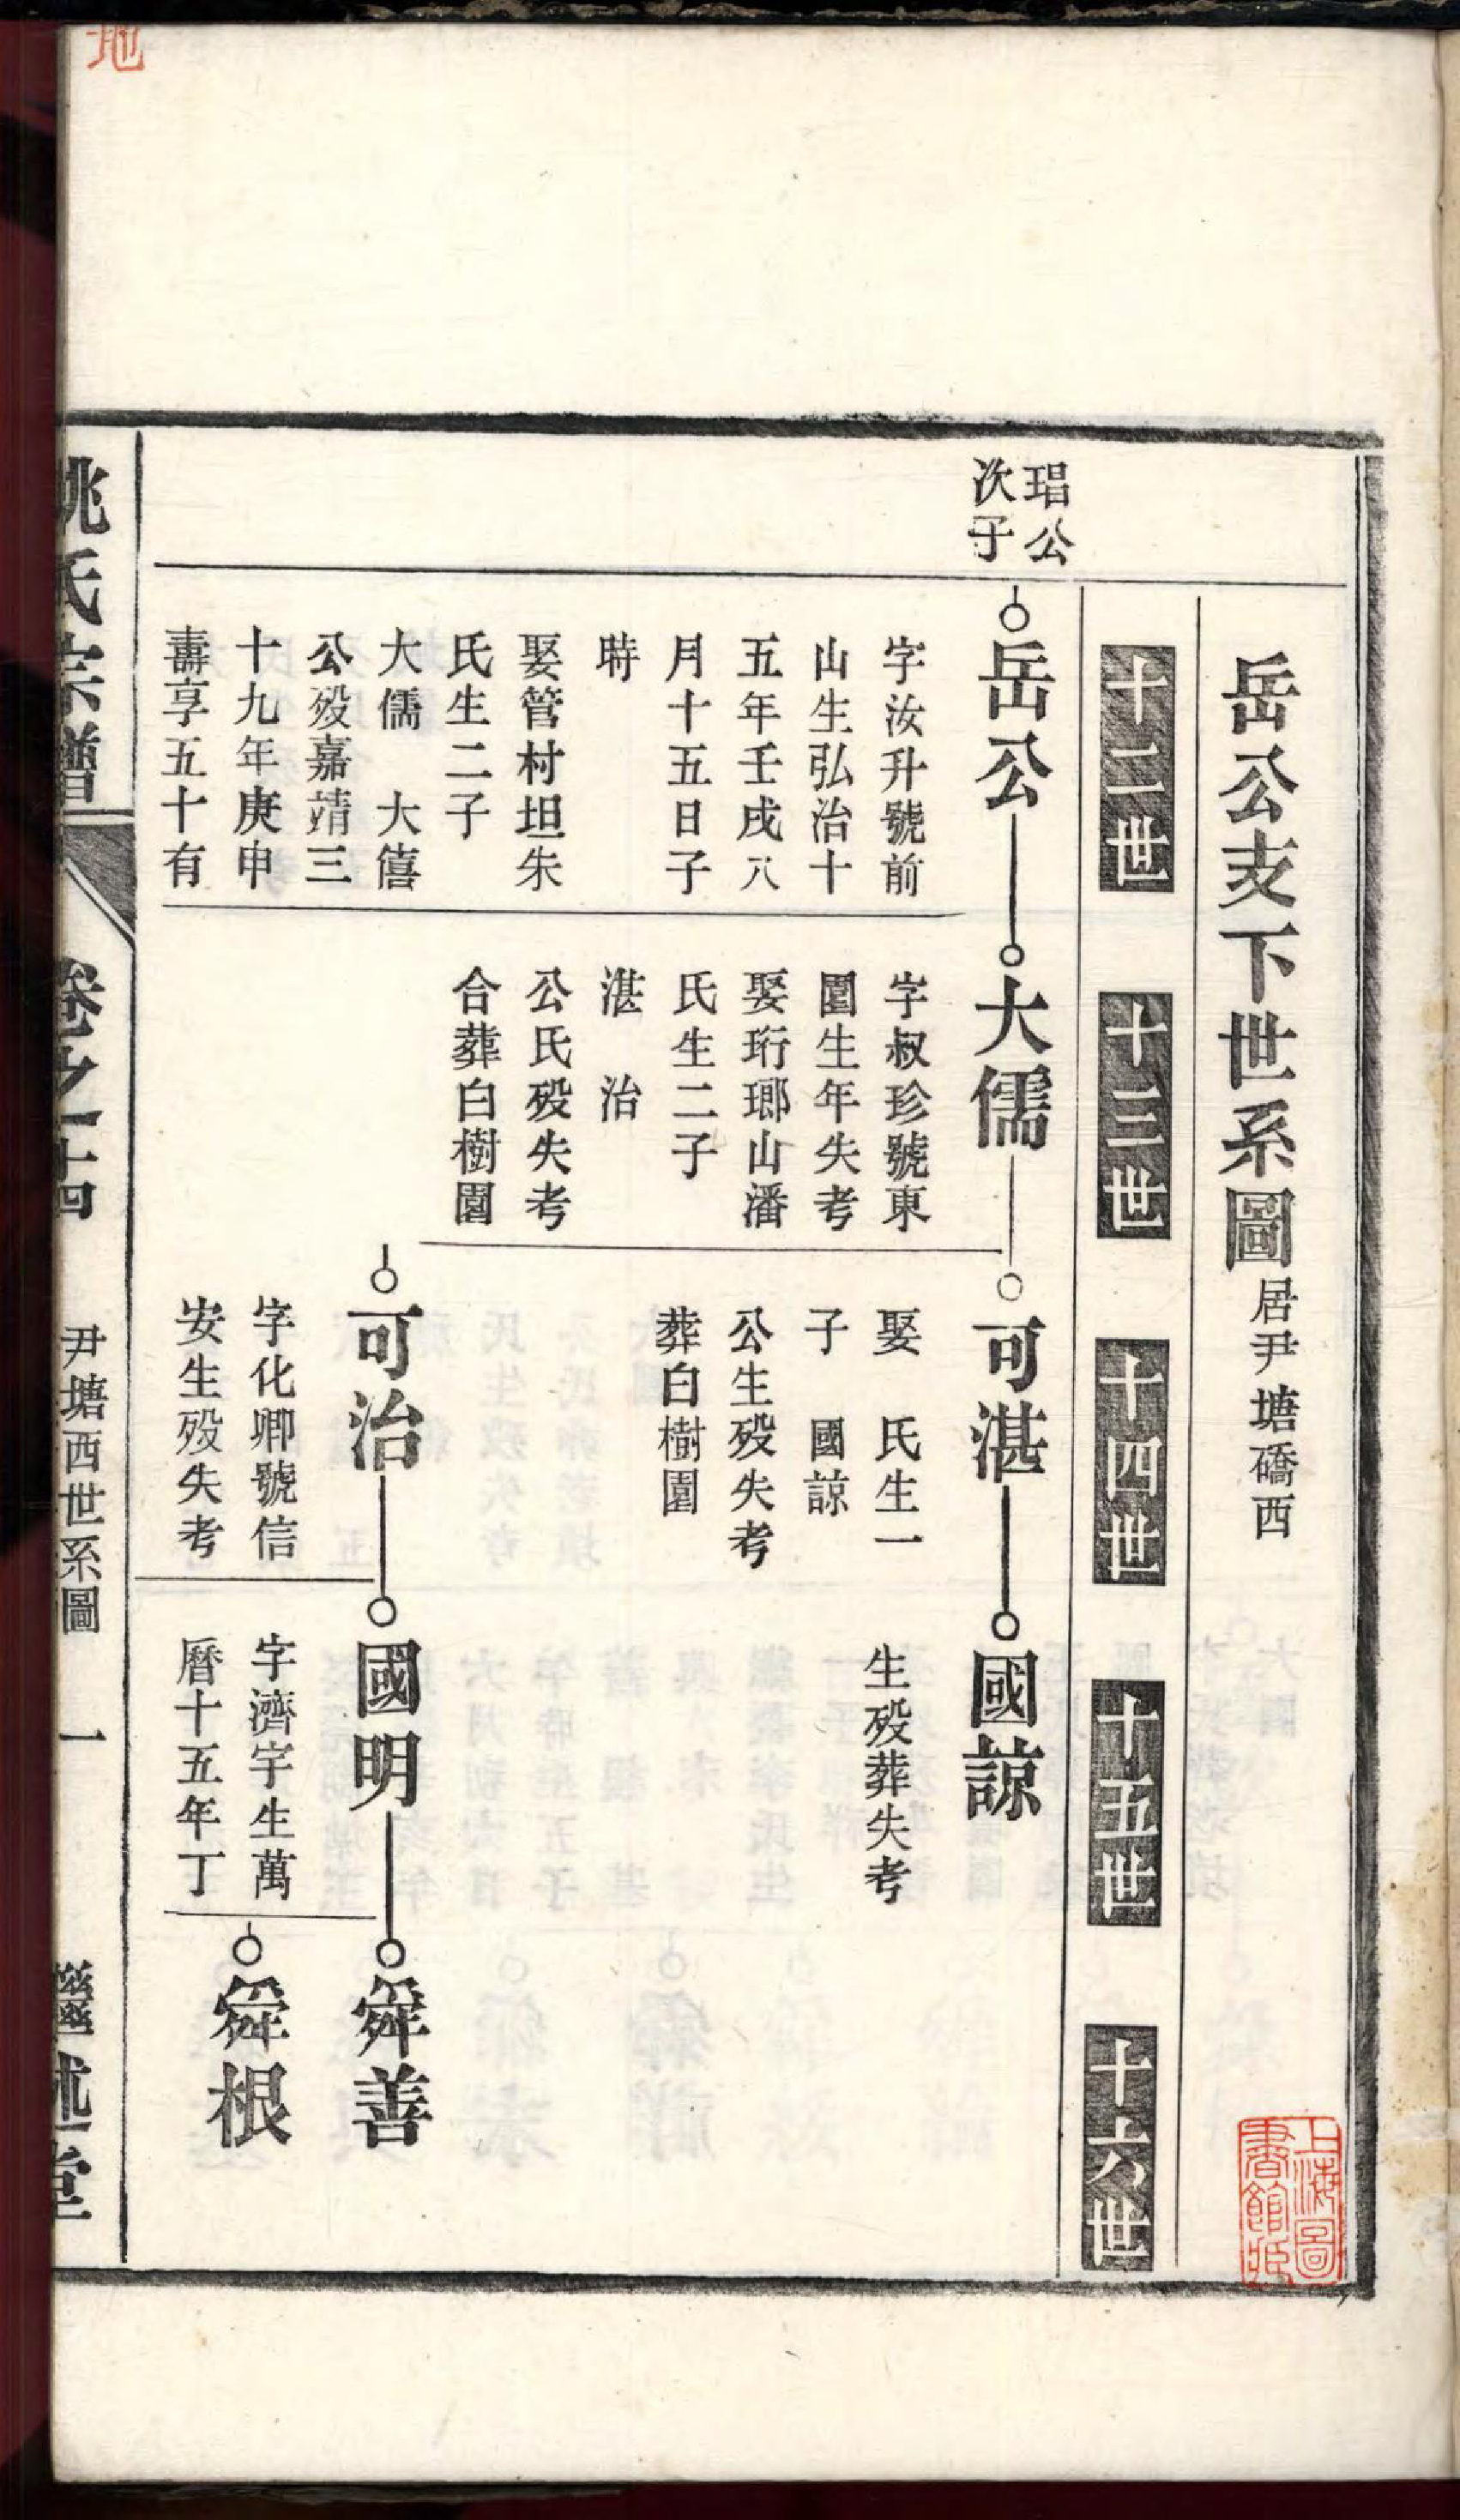 岳公支下世系圖居尹塘礄西
十二世
十三世
十四世
十五世
十六世
琩公
次子
岳公
字汝升號前
山生弘治十
五年壬戌八
月十五日子
時
娶管村坦朱
氏生二子
大儒 大僖
公殁嘉靖三
十九年庚申
壽享五十有
大儒
字叔珍號東
園生年失考
娶珩瑯山潘
氏生二子
湛 治
公氏殁失考
合葬白樹園
可湛
娶 氏生一
子 國諒
公生殁失考
葬白樹園
國諒
生殁葬失考
可治
字化卿號信
安生殁失考
國明
字濟宇生萬
曆十五年丁
舜善
舜根
姚氏宗譜
卷之十四
尹塘西世系圖
一
繼述堂
上海圖
書館藏